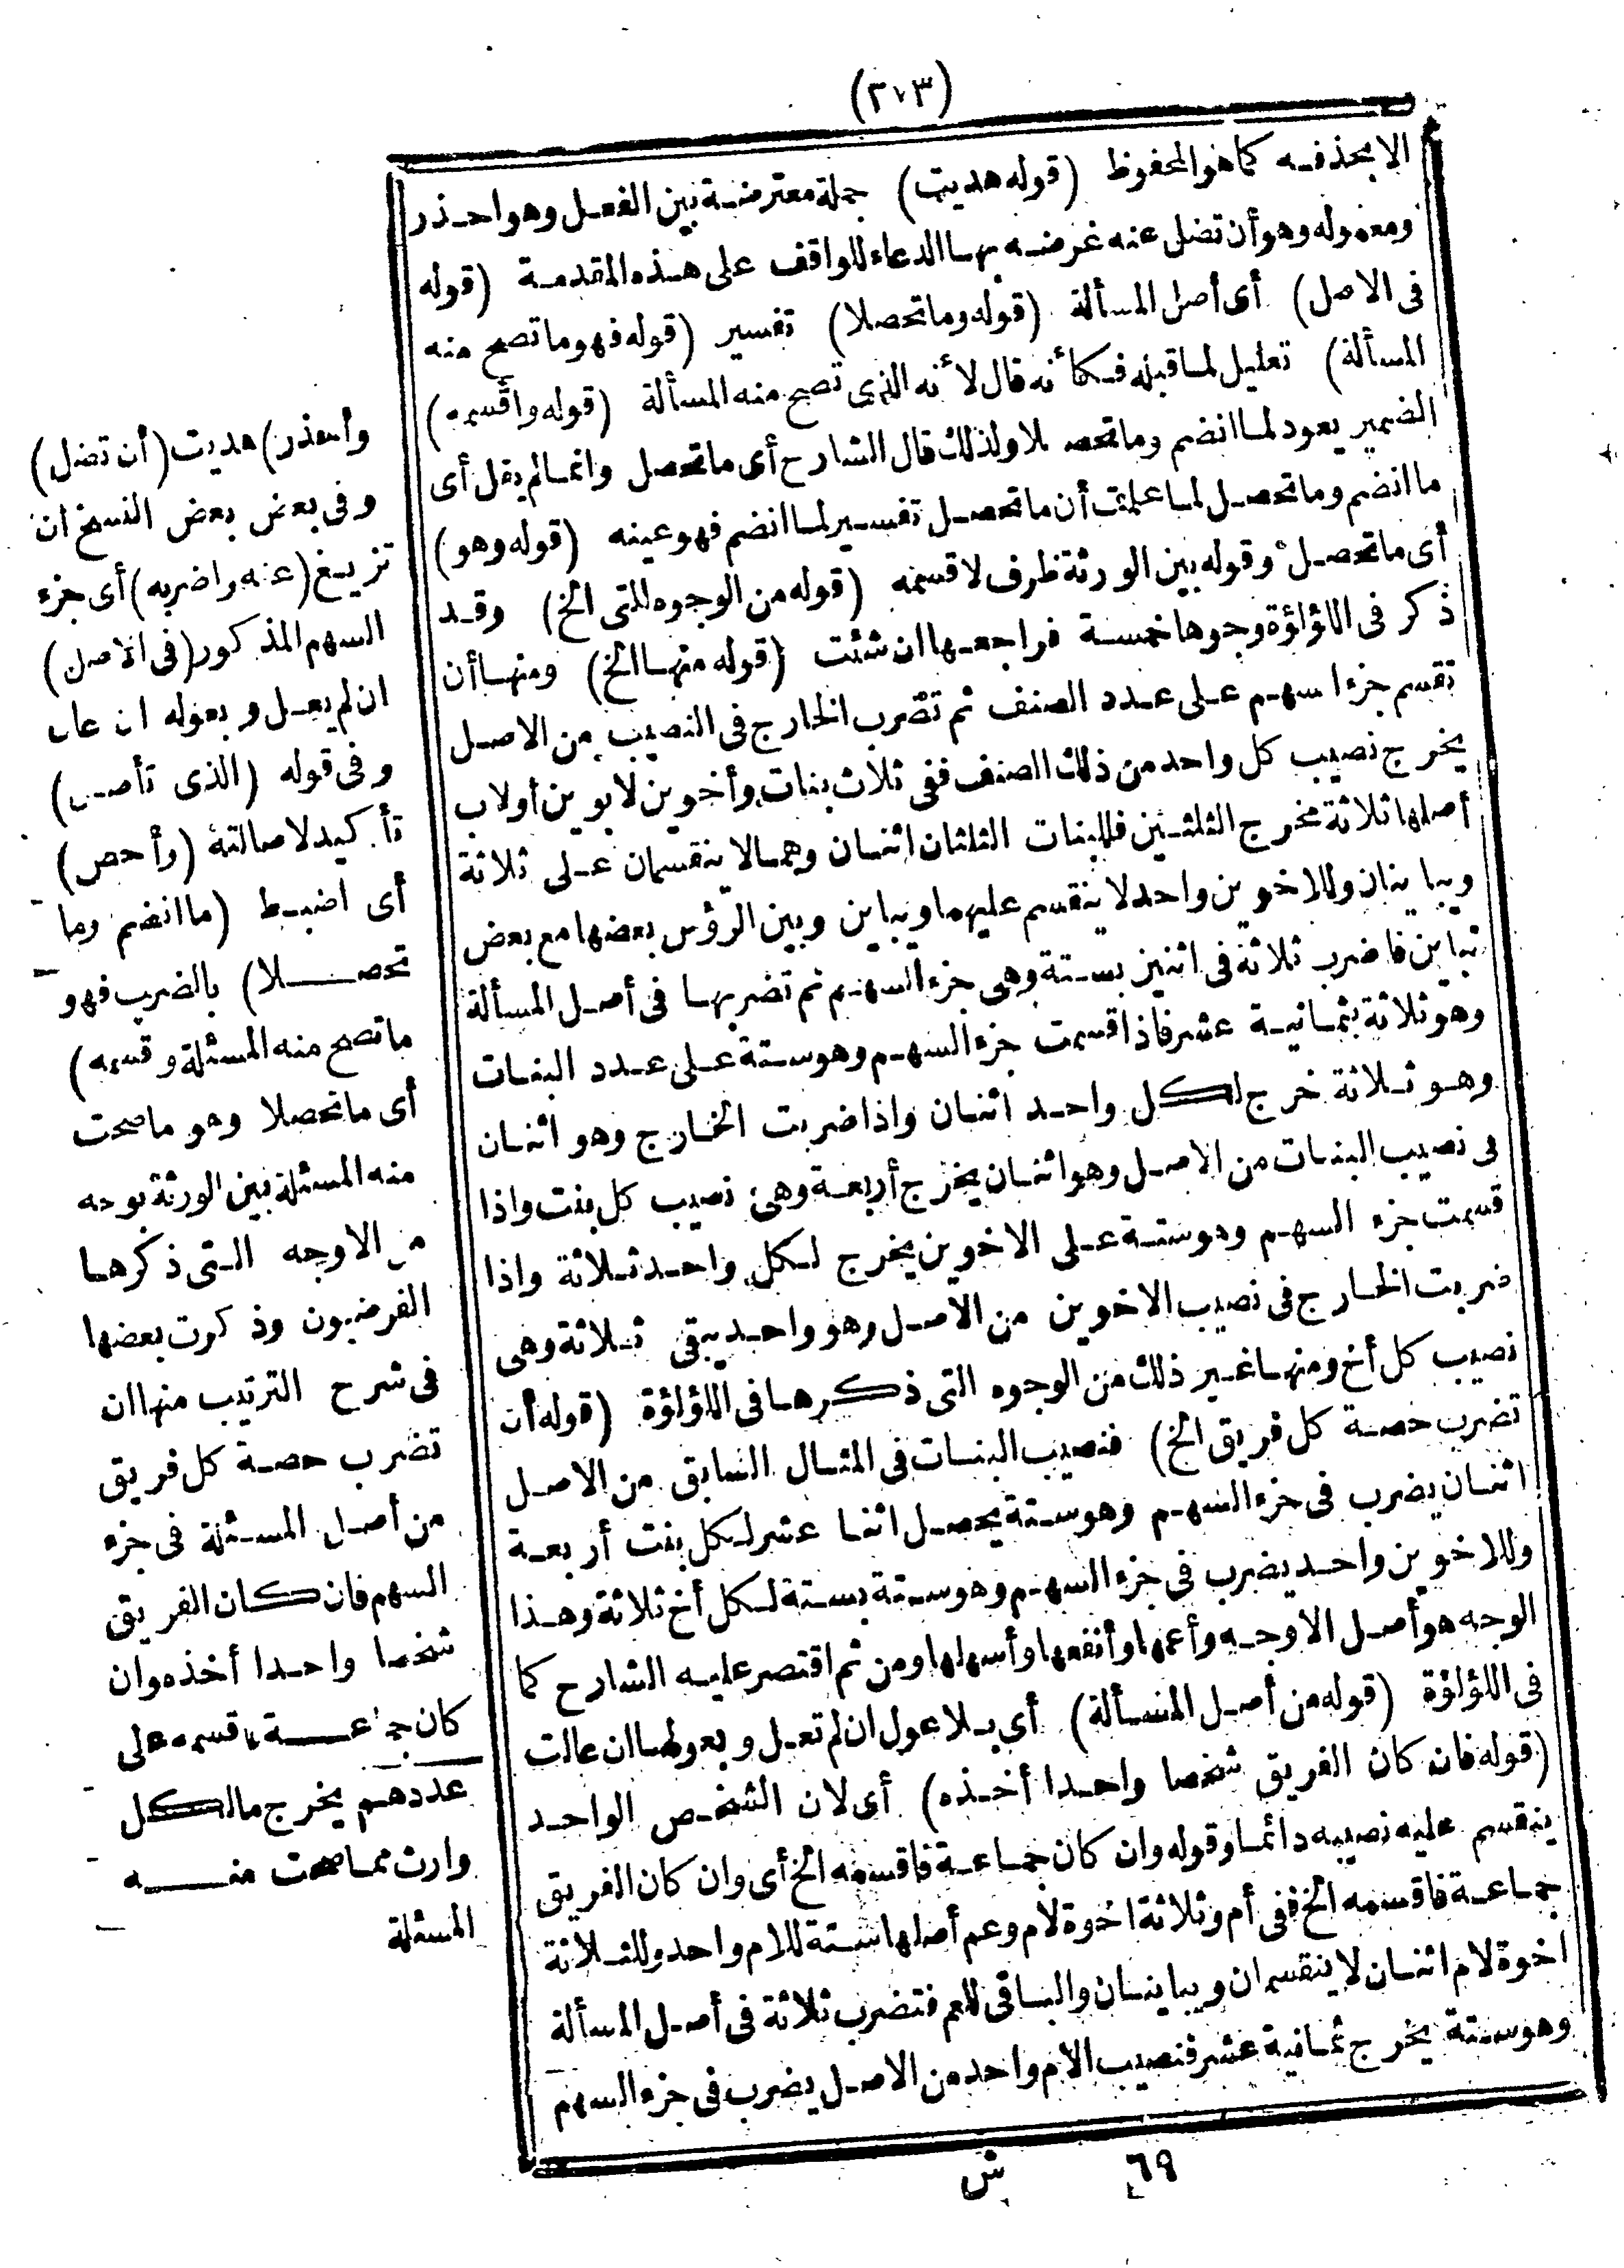 (٢٧٣)
الا بحذفه كما هو المحفوظ (قوله هديت) جملة معترضة بين الفعل وهو احذر
ومعموله وهو أن تضل عنه غرضه بها الدعاء للواقف على هذه المقدمة (قوله
فى الاصل) أى أصل المسألة (قوله وما تحصلا) تفسير (قوله فهو ما تصح منه
المسألة) تعليل لما قبله فكأنه قال لأنه الذى تصح منه المسألة (قوله وأقسمه)
الضمير يعود لما انضم وما تحصلا ولذلك قال الشارح أى ما تحصل وانما لم يقل أى
ما انضم وما تحصل لما علمت أن ما تحصل تفسير لما انضم فهو عينه (قوله وهو)
أى ما تحصل وقوله بين الورثة ظرف لاقسمه (قوله من الوجوه التى الخ) وقد
ذكر فى اللؤلؤة وجوها خمسة فراجعها ان شئت (قوله منها الخ) ومنها أن
تقسم جزء السهم على عدد الصنف ثم تضرب الخارج فى النصيب من الاصل
يخرج نصيب كل واحد من ذلك الصنف ففى ثلاث بنات وأخوين لابوين أولاب
أصلها ثلاثة مخرج الثلثين فللبنات الثلثان اثنان وهما لا ينقسمان على ثلاثة
ويباينان وللاخوين واحد لا ينقسم عليهما ويباين وبين الرؤس بعضها مع بعض
تباين فاضرب ثلاثة فى اثنين بستة وهى جزء السهم ثم تضربها فى أصل المسألة
وهو ثلاثة بثمانية عشر فاذا قسمت جزء السهم وهو ستة على عدد البنات
وهو ثلاثة خرج لكل واحد اثنان واذا ضربت الخارج وهو اثنان
فى نصيب البنات من الاصل وهو اثنان يخرج أربعة وهى نصيب كل بنت واذا
قسمت جزء السهم وهو ستة على الاخوين يخرج لكل واحد ثلاثة واذا
ضربت الخارج فى نصيب الاخوين من الاصل وهو واحد يبقى ثلاثة وهى
نصيب كل أخ ومنها غير ذلك من الوجوه التى ذكرها فى اللؤلؤة (قوله أن
تضرب حصة كل فريق الخ) فنصيب البنات فى المثال السابق من الاصل
اثنان يضرب فى جزء السهم وهو ستة يحصل اثنا عشر لكل بنت أربعة
وللاخوين واحد يضرب فى جزء السهم وهو ستة بستة لكل أخ ثلاثة وهذا
الوجه هو أصل الاوجه وأعمها وأنفعها وأسهلها ومن ثم اقتصر عليه الشارح كما
فى اللؤلؤة (قوله من أصل المسألة) أى بلا عول ان لم تعل وبعولها ان عالت
(قوله فان كان الفريق شخصا واحدا أخذه) أى لان الشخص الواحد
ينقسم عليه نصيبه دائما وقوله وان كان جماعة فاقسمه الخ أى وان كان الفريق
جماعة فاقسمه الخ ففى أم وثلاثة اخوة لام وعم أصلها ستة للام واحد وللثلاثة
اخوة لام اثنان لا ينقسمان ويباينان والباقى للعم فتضرب ثلاثة فى أصل المسألة
وهو ستة يخرج ثمانية عشر فنصيب الام واحد من الاصل يضرب فى جزء السهم
واحذر) هديت (أن تضل)
وفى بعض بعض النسخ ان
تزيغ (عنه واضربه) أى جزء
السهم المذكور (فى الاصل)
ان لم يعل وبعوله ان عال
وفى قوله (الذى تأصل)
تأكيد لاصالته (وأحص)
أى اضبط (ما انضم وما
تحصلا) بالضرب فهو
ما تصح منه المسئلة وقسمه)
أى ما تحصلا وهو ما صحت
منه المسئلة بين الورثة بوجه
من الاوجه التى ذكرها
الفرضيون وذكرت بعضها
فى شرح الترتيب منها ان
تضرب حصة كل فريق
من أصل المسئلة فى جزء
السهم فان كان الفريق
شخصا واحدا أخذه وان
كان جماعة فاقسمه على
عددهم يخرج ما لكل
وارث مما صحت منه
المسئلة
٦٩ ش